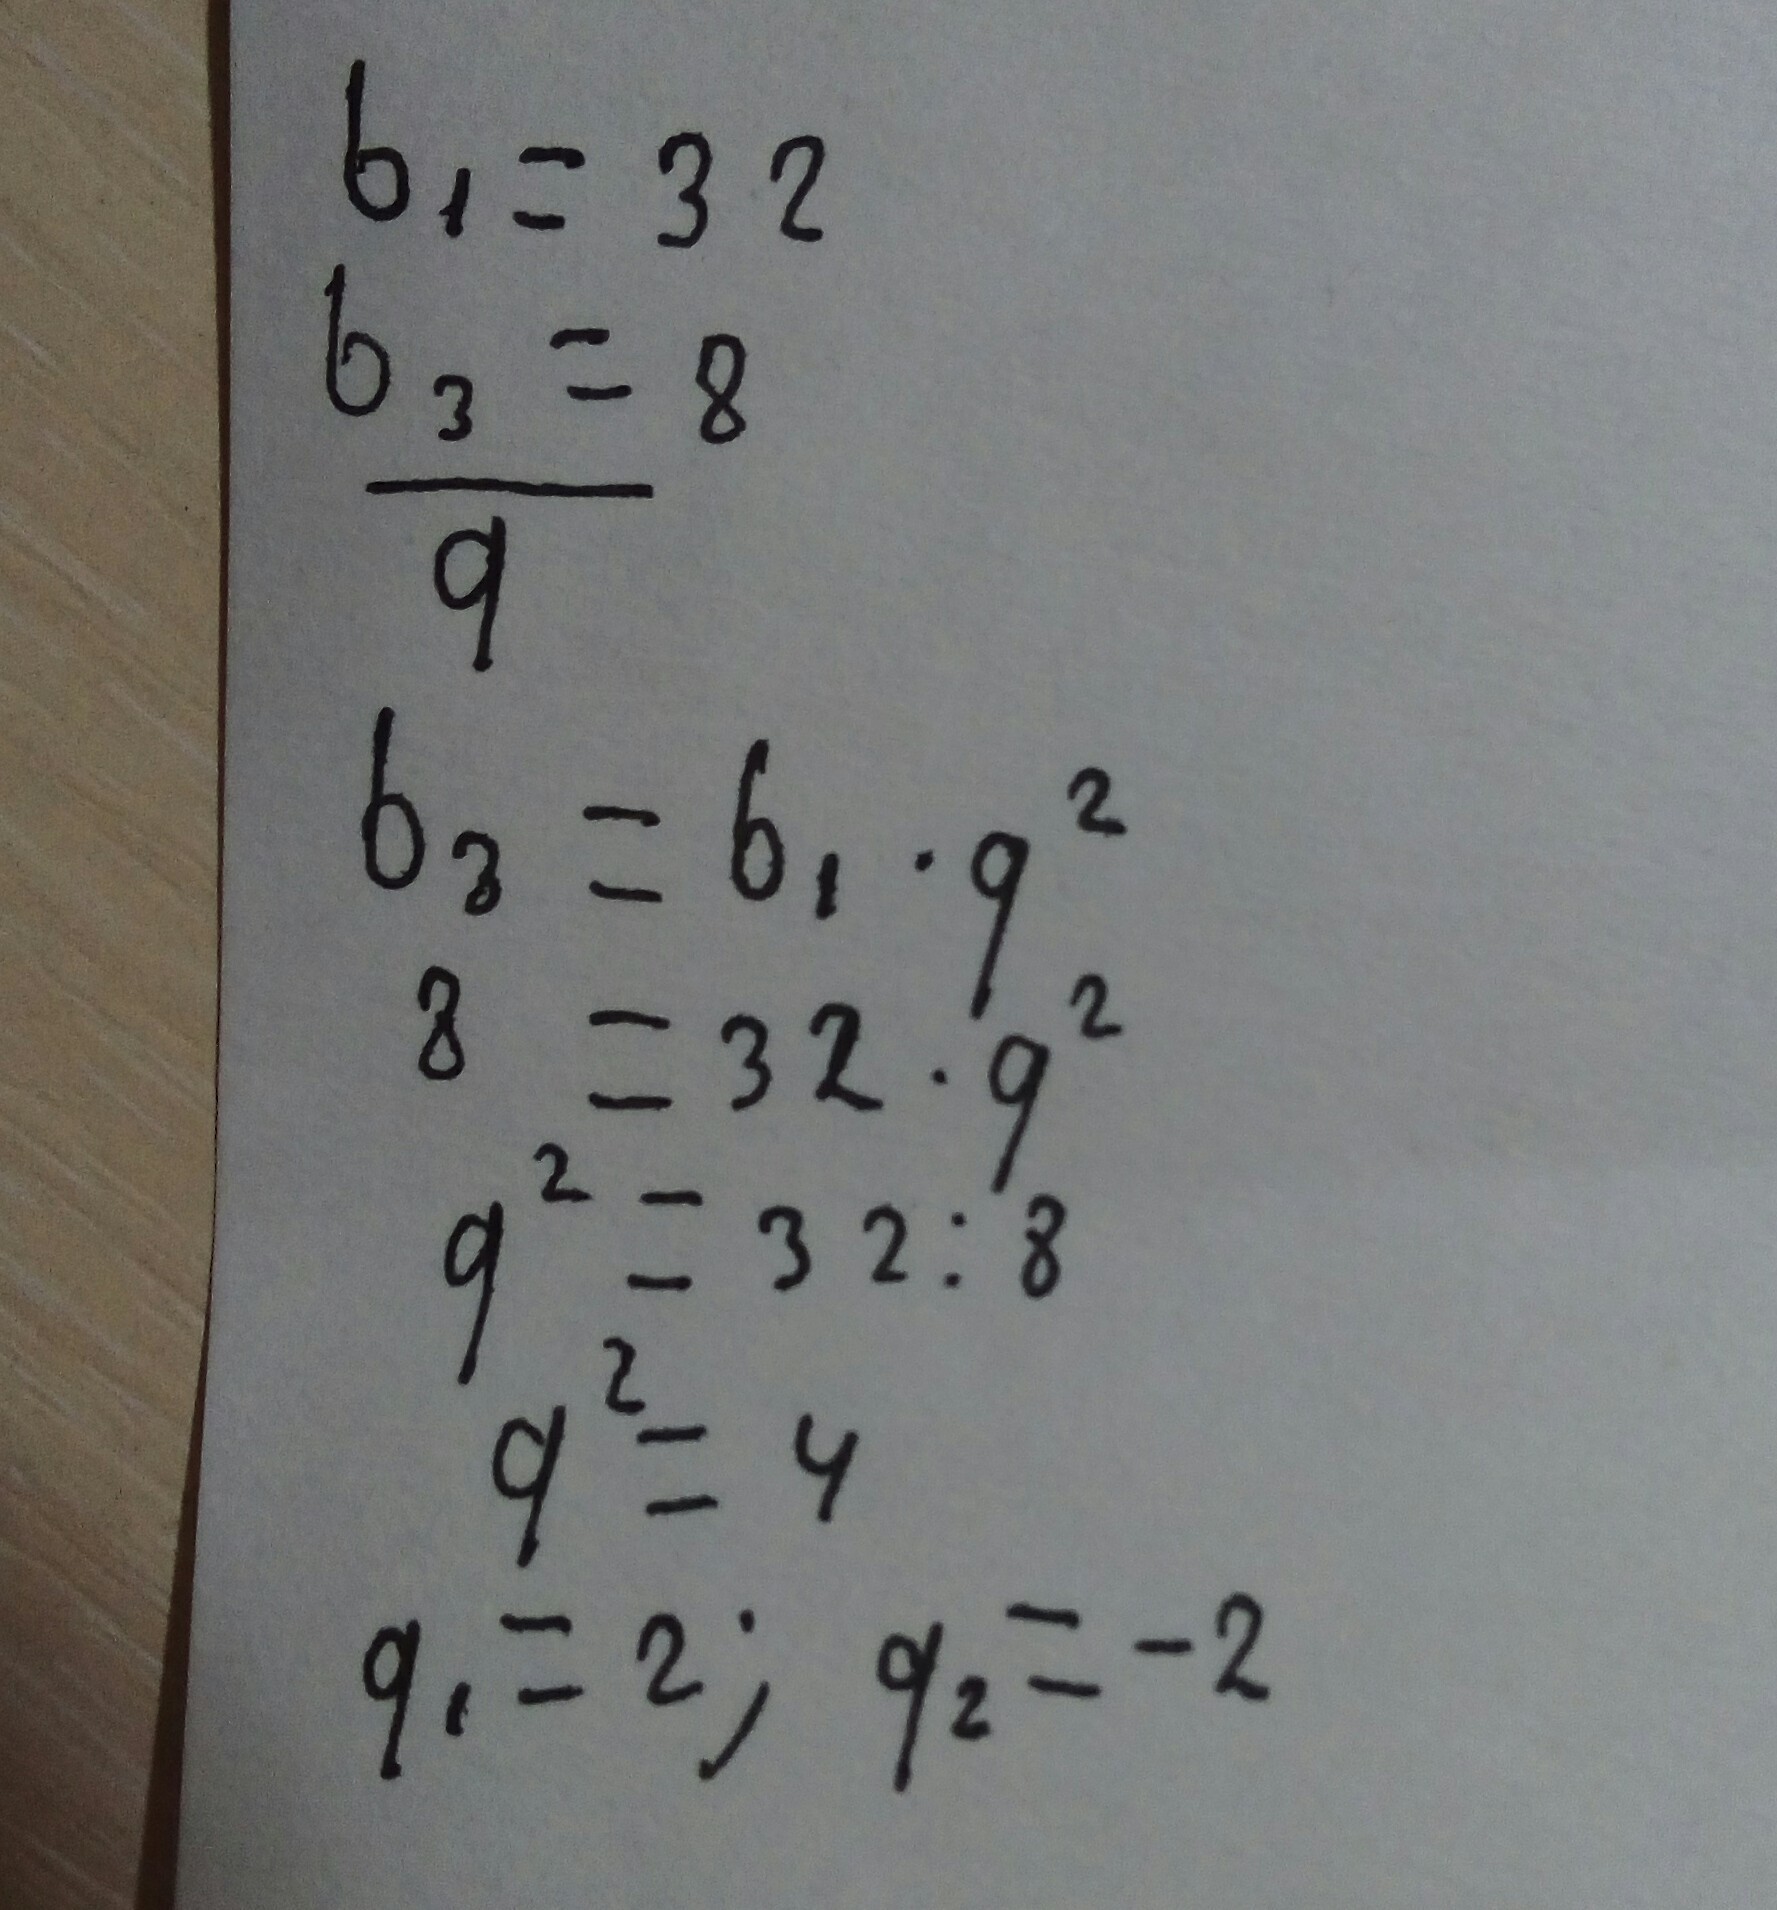 b₁ = 32
b₃ = 8
q
b₃ = b₁ · q²
8 = 32 · q²
q² = 32 : 8
q² = 4
q₁ = 2; q₂ = -2